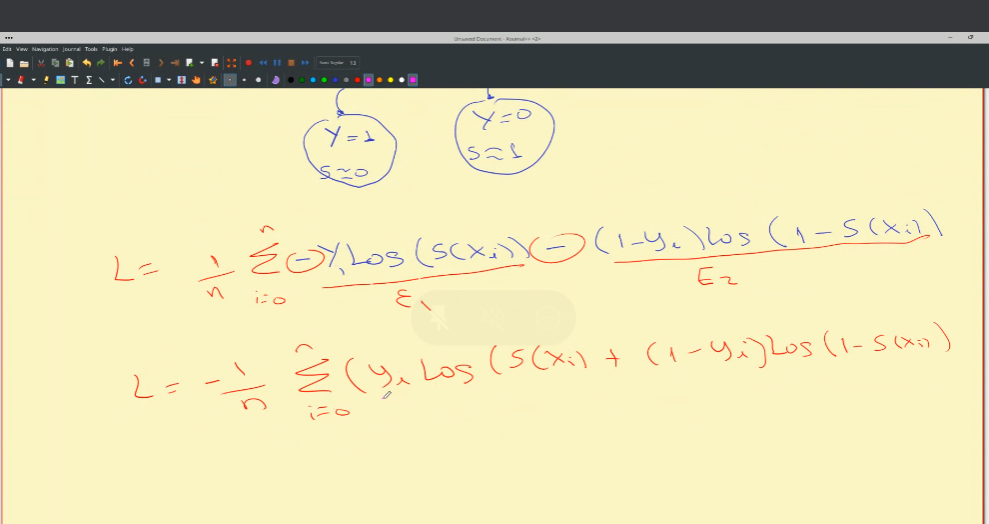 Unsaved Document - Xournal++ <2>
Edit View Navigation Journal Tools Plugin Help
12
Y=1
S≈0
Y=0
S≈1
L = 1/n Σ i=0 n - Yi Log (S(xi)) - (1-yi) Log (1 - S(xi))
E1 E2
L = -1/n Σ i=0 n (yi Log (S(xi) + (1-yi) Log (1-S(xi))